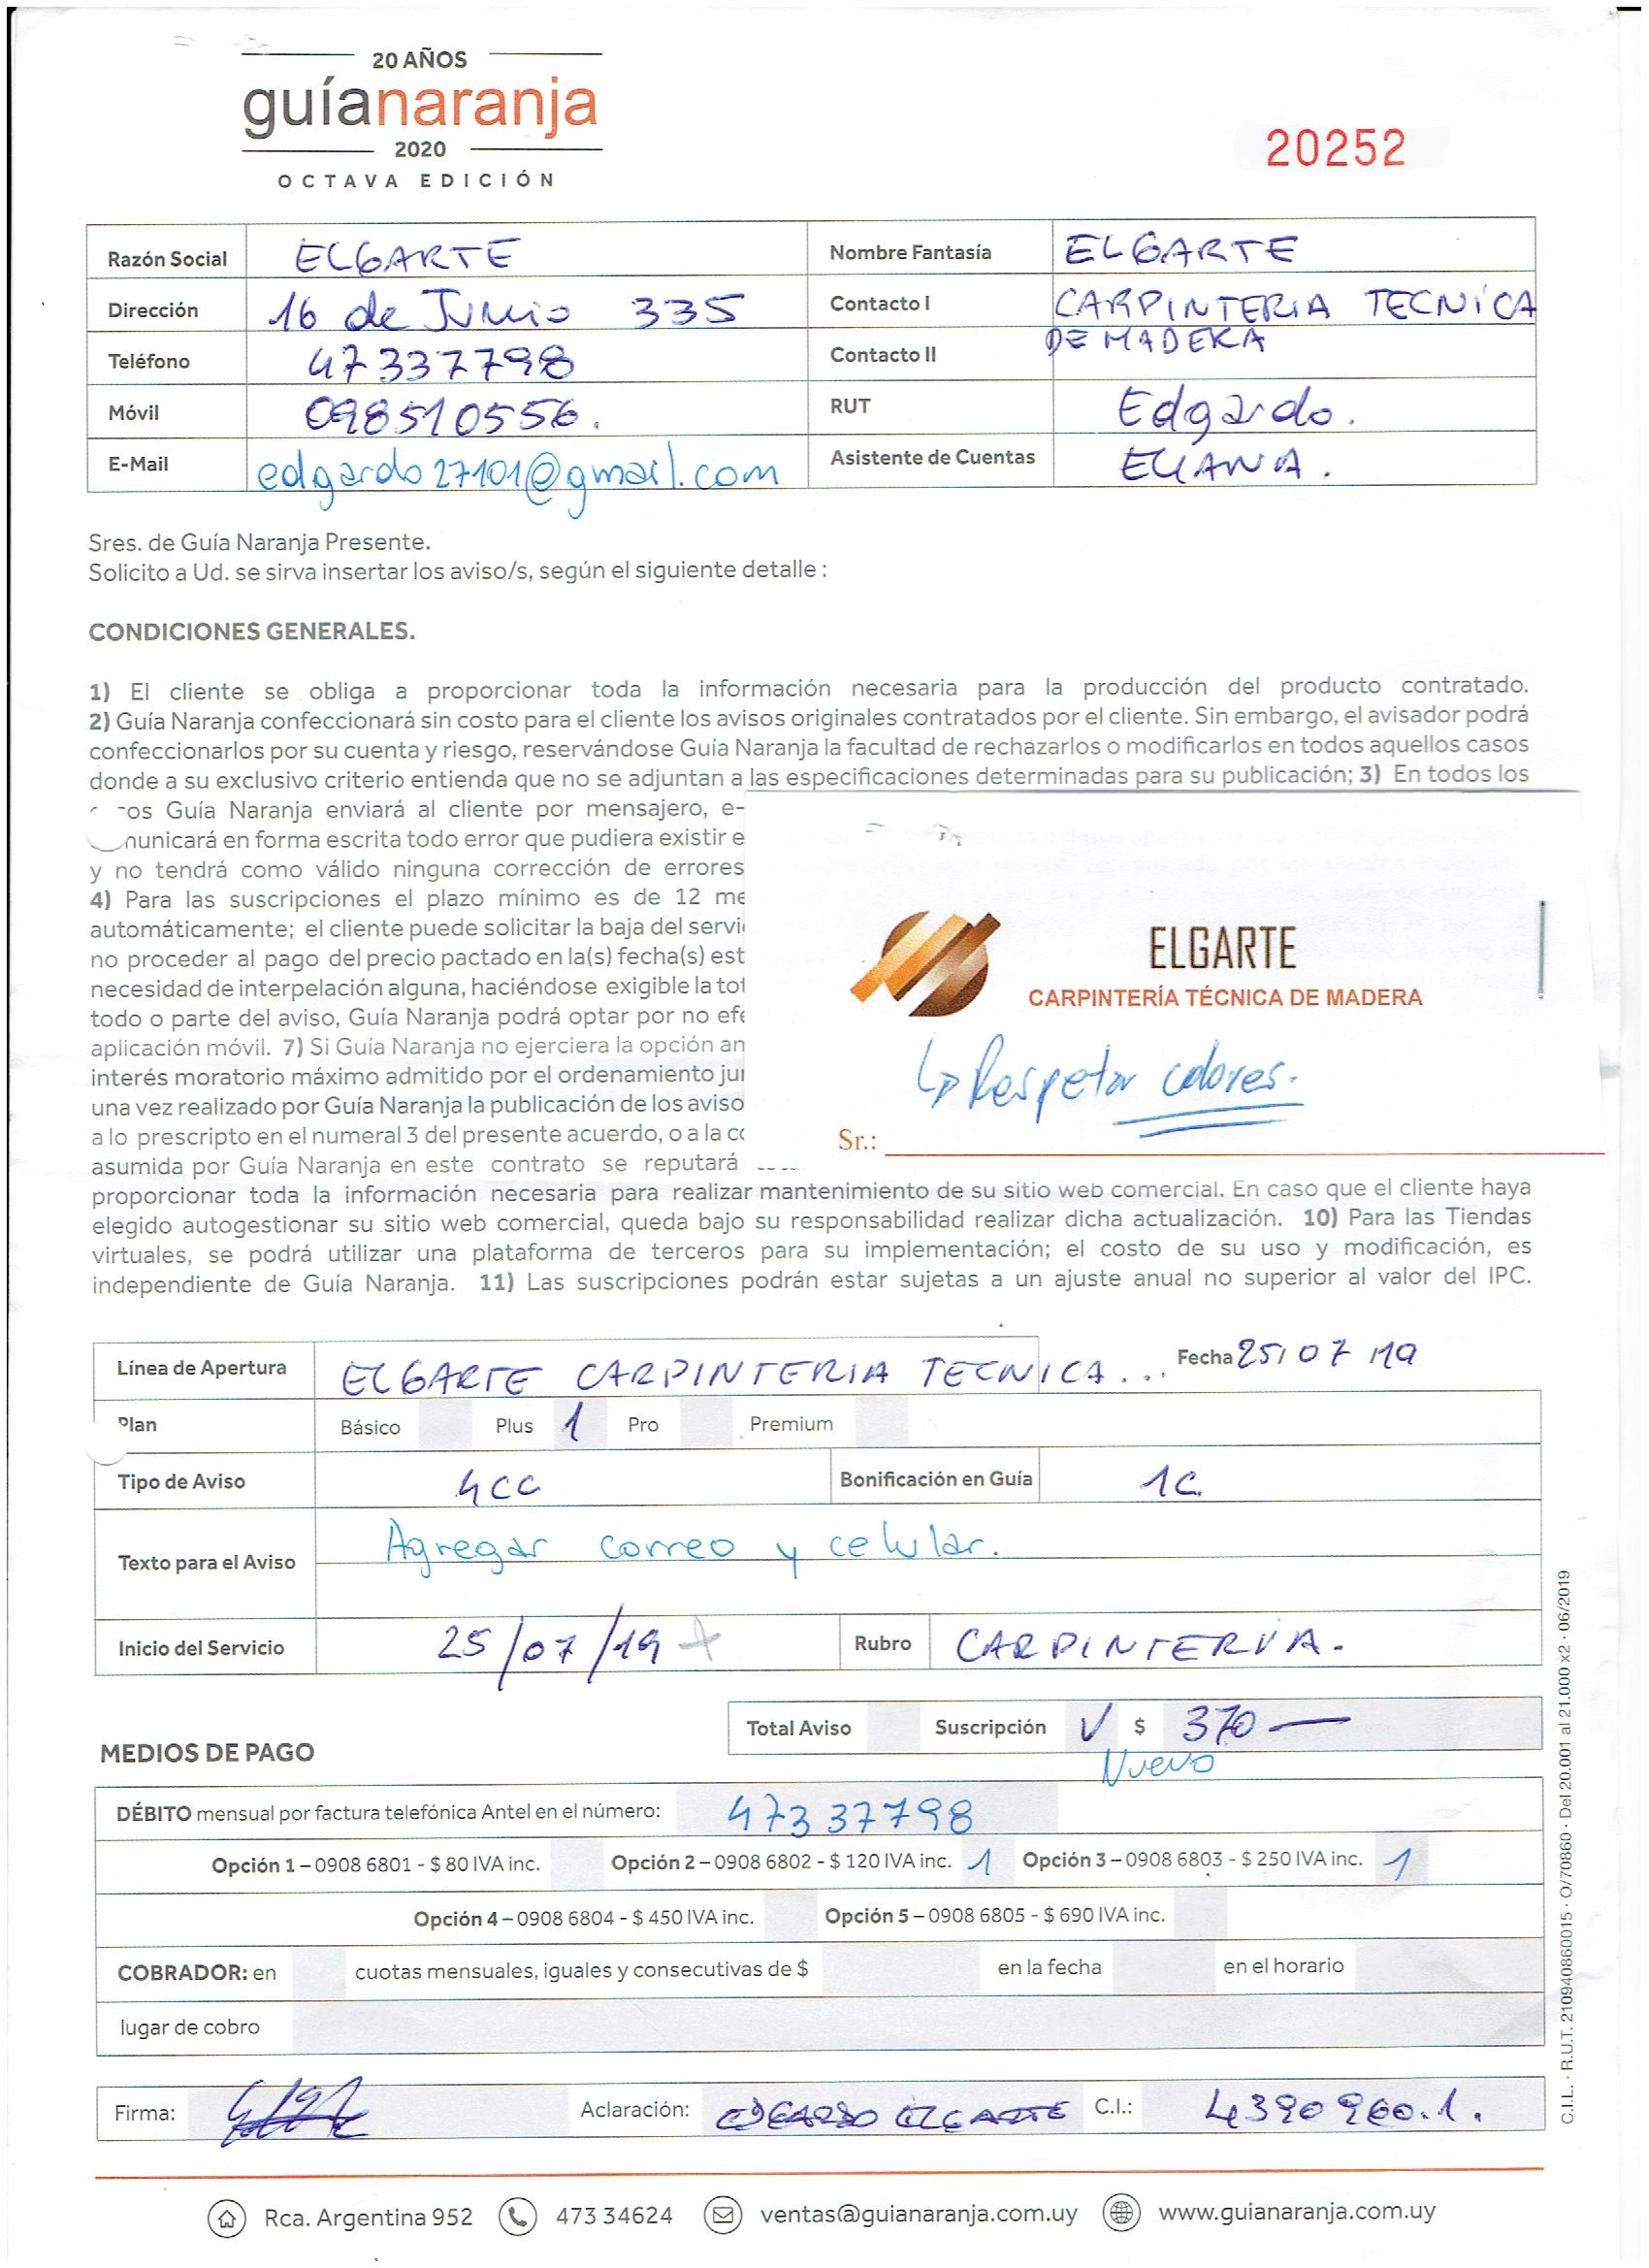 20 AÑOS
guíanaranja
2020
OCTAVA EDICIÓN
20252
Razón Social ELGARTE Nombre Fantasía ELGARTE
Dirección 16 de Junio 335 Contacto I CARPINTERIA TECNICA
Teléfono 47337798 Contacto II DE MADERA
Móvil 098510556. RUT Edgardo.
E-Mail edgardo27101@gmail.com Asistente de Cuentas ELIANA.
Sres. de Guía Naranja Presente.
Solicito a Ud. se sirva insertar los aviso/s, según el siguiente detalle :
CONDICIONES GENERALES.
1) El cliente se obliga a proporcionar toda la información necesaria para la producción del producto contratado.
2) Guía Naranja confeccionará sin costo para el cliente los avisos originales contratados por el cliente. Sin embargo, el avisador podrá
confeccionarlos por su cuenta y riesgo, reservándose Guía Naranja la facultad de rechazarlos o modificarlos en todos aquellos casos
donde a su exclusivo criterio entienda que no se adjuntan a las especificaciones determinadas para su publicación; 3) En todos los
os Guía Naranja enviará al cliente por mensajero, e-
municará en forma escrita todo error que pudiera existir e
y no tendrá como válido ninguna corrección de errores
4) Para las suscripciones el plazo mínimo es de 12 me
automáticamente; el cliente puede solicitar la baja del servi
no proceder al pago del precio pactado en la(s) fecha(s) est
necesidad de interpelación alguna, haciéndose exigible la tot
todo o parte del aviso, Guía Naranja podrá optar por no efe
aplicación móvil. 7) Si Guía Naranja no ejerciera la opción an
interés moratorio máximo admitido por el ordenamiento jur
una vez realizado por Guía Naranja la publicación de los aviso
a lo prescripto en el numeral 3 del presente acuerdo, o a la co
asumida por Guía Naranja en este contrato se reputará
ELGARTE
CARPINTERÍA TÉCNICA DE MADERA
↳ Respetar colores.
Sr.:
proporcionar toda la información necesaria para realizar mantenimiento de su sitio web comercial. En caso que el cliente haya
elegido autogestionar su sitio web comercial, queda bajo su responsabilidad realizar dicha actualización. 10) Para las Tiendas
virtuales, se podrá utilizar una plataforma de terceros para su implementación; el costo de su uso y modificación, es
independiente de Guía Naranja. 11) Las suscripciones podrán estar sujetas a un ajuste anual no superior al valor del IPC.
Línea de Apertura ELGARTE CARPINTERIA TECNICA... Fecha 25/07/19
Plan Básico Plus 1 Pro Premium
Tipo de Aviso 4CC Bonificación en Guía 1C.
Texto para el Aviso Agregar correo y celular.
Inicio del Servicio 25/07/19 Rubro CARPINTERIA.
Total Aviso Suscripción V $ 370—
Nuevo
MEDIOS DE PAGO
DÉBITO mensual por factura telefónica Antel en el número: 47337798
Opción 1 – 0908 6801 - $ 80 IVA inc. Opción 2 – 0908 6802 - $ 120 IVA inc. 1 Opción 3 – 0908 6803 - $ 250 IVA inc. 1
Opción 4 – 0908 6804 - $ 450 IVA inc. Opción 5 – 0908 6805 - $ 690 IVA inc.
COBRADOR: en cuotas mensuales, iguales y consecutivas de $ en la fecha en el horario
lugar de cobro
Firma: Aclaración: EDGARDO ELGARTE C.I.: 4390960.1.
Rca. Argentina 952 473 34624 ventas@guianaranja.com.uy www.guianaranja.com.uy
C.I.L. · R.U.T. 210940860015 · O/70860 · Del 20.001 al 21.000 x2 · 06/2019